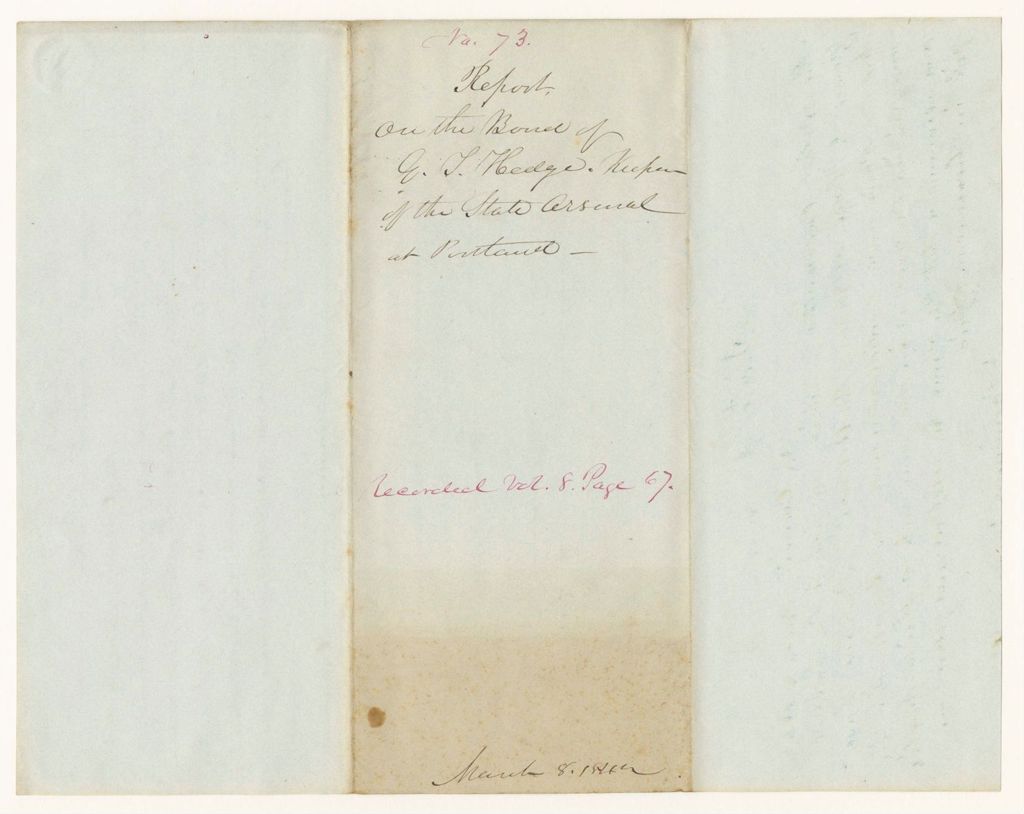 No. 73.
Report.
On the Bond of
G. S. Hedge. Keeper
of the State Arsenal
at Portland –
Recorded Vol. 8. Page 67.
March 8.